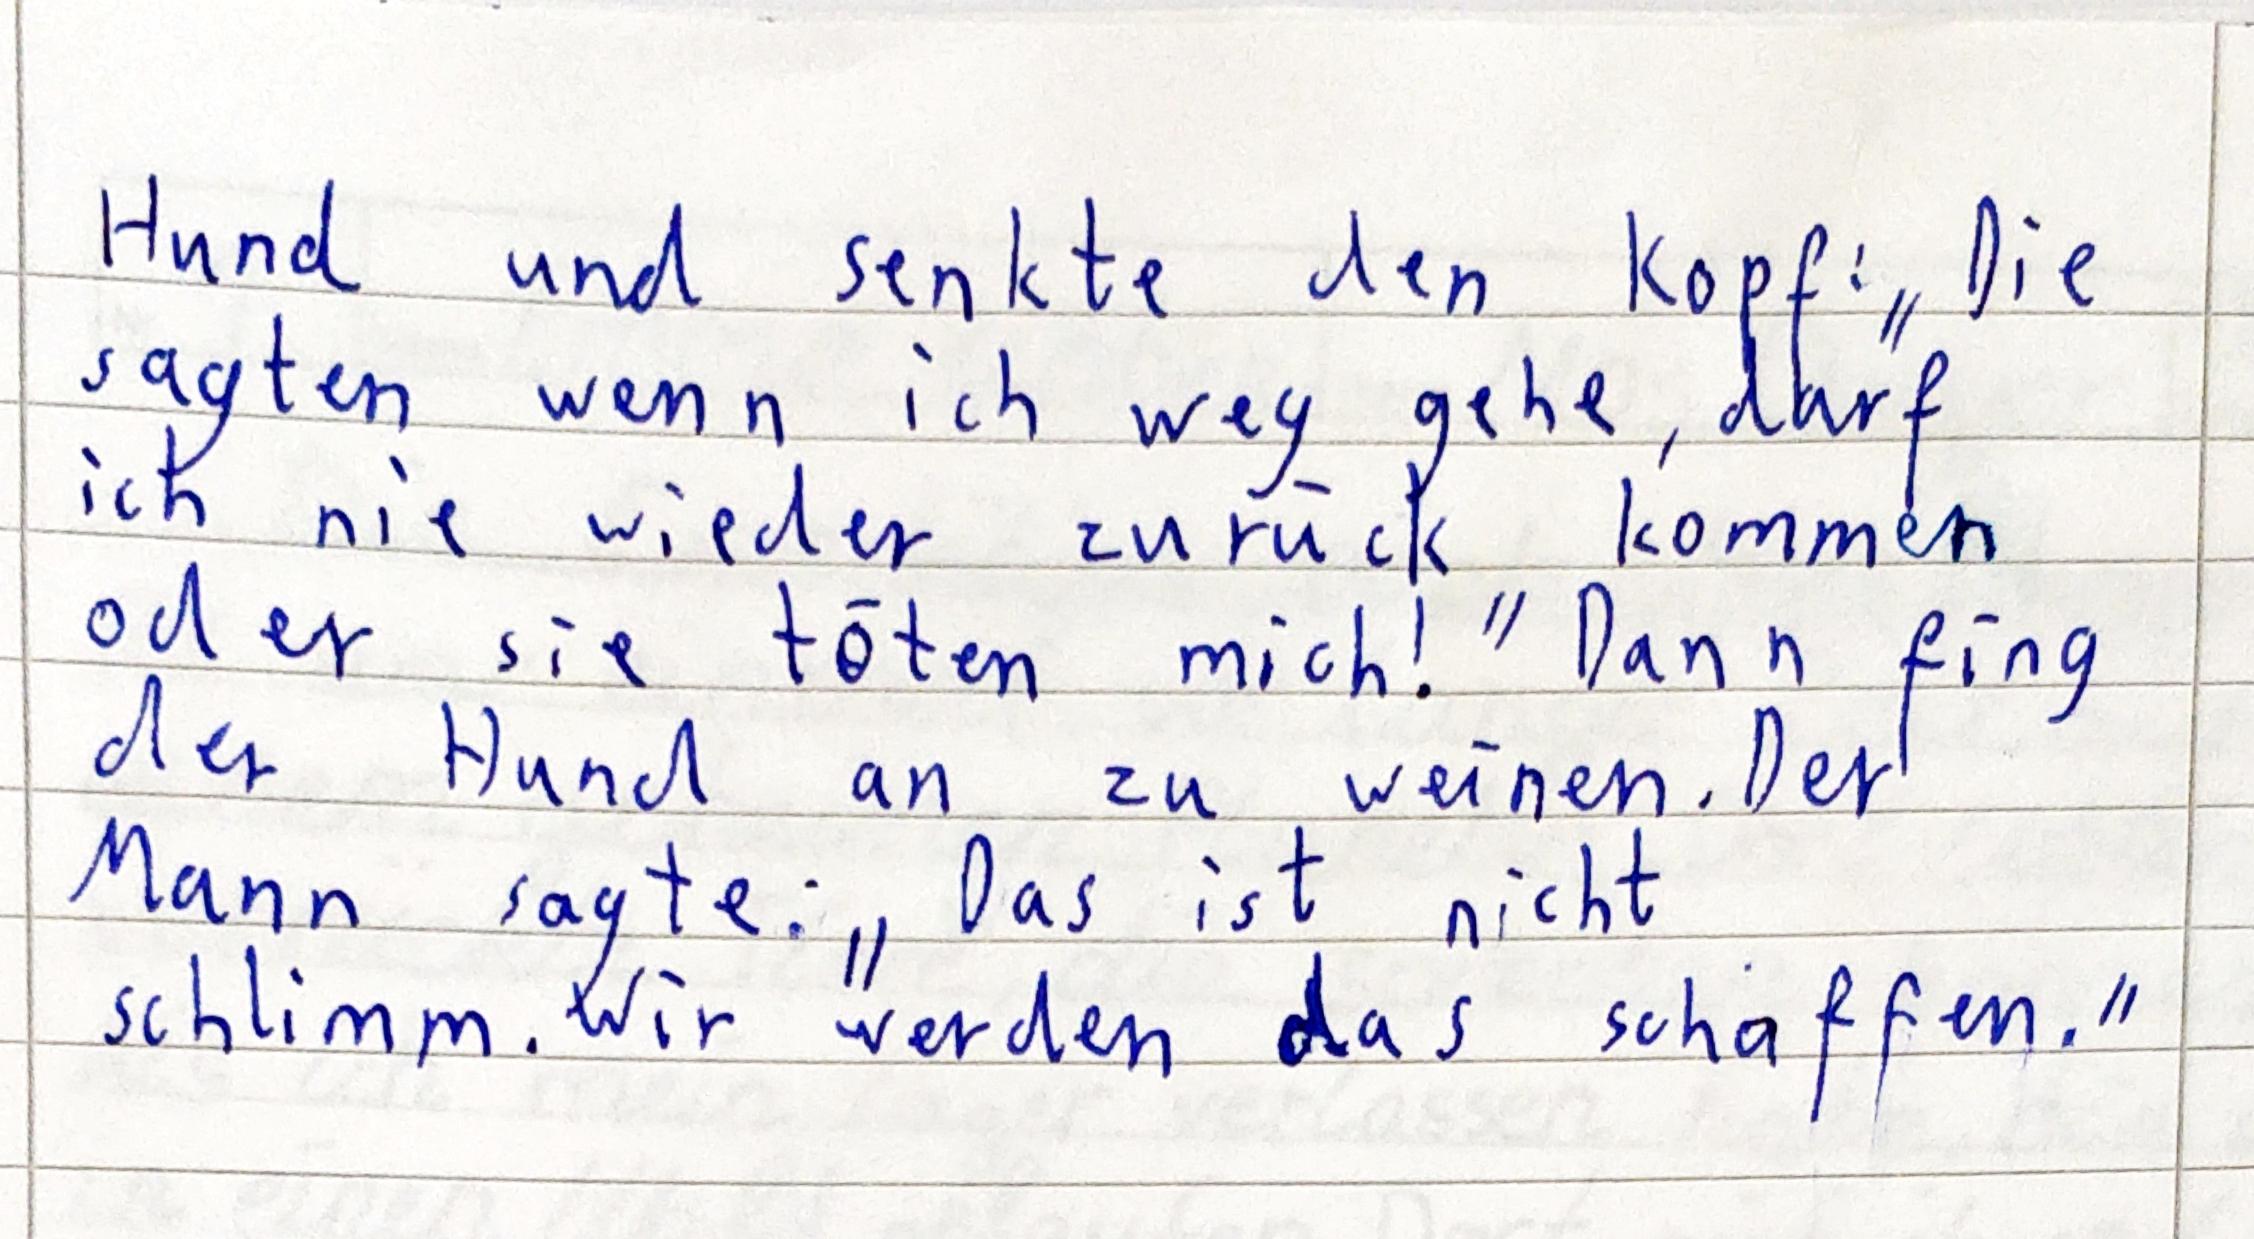 Hund und senkte den Kopf: „Die
sagten wenn ich weg gehe, darf
ich nie wieder zurück kommen
oder sie töten mich!" Dann fing
der Hund an zu weinen. Der
Mann sagte: „Das ist nicht
schlimm. Wir werden das schaffen."